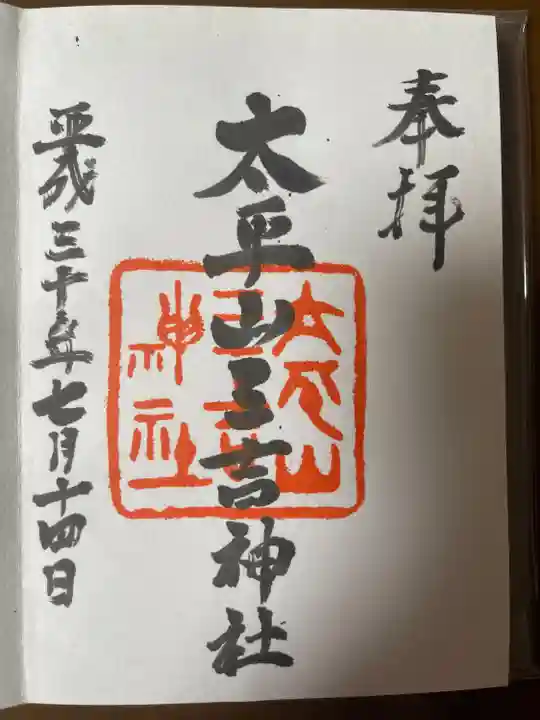 奉拝
太平山三吉神社
平成三十年七月十四日
太平山
三吉
神社